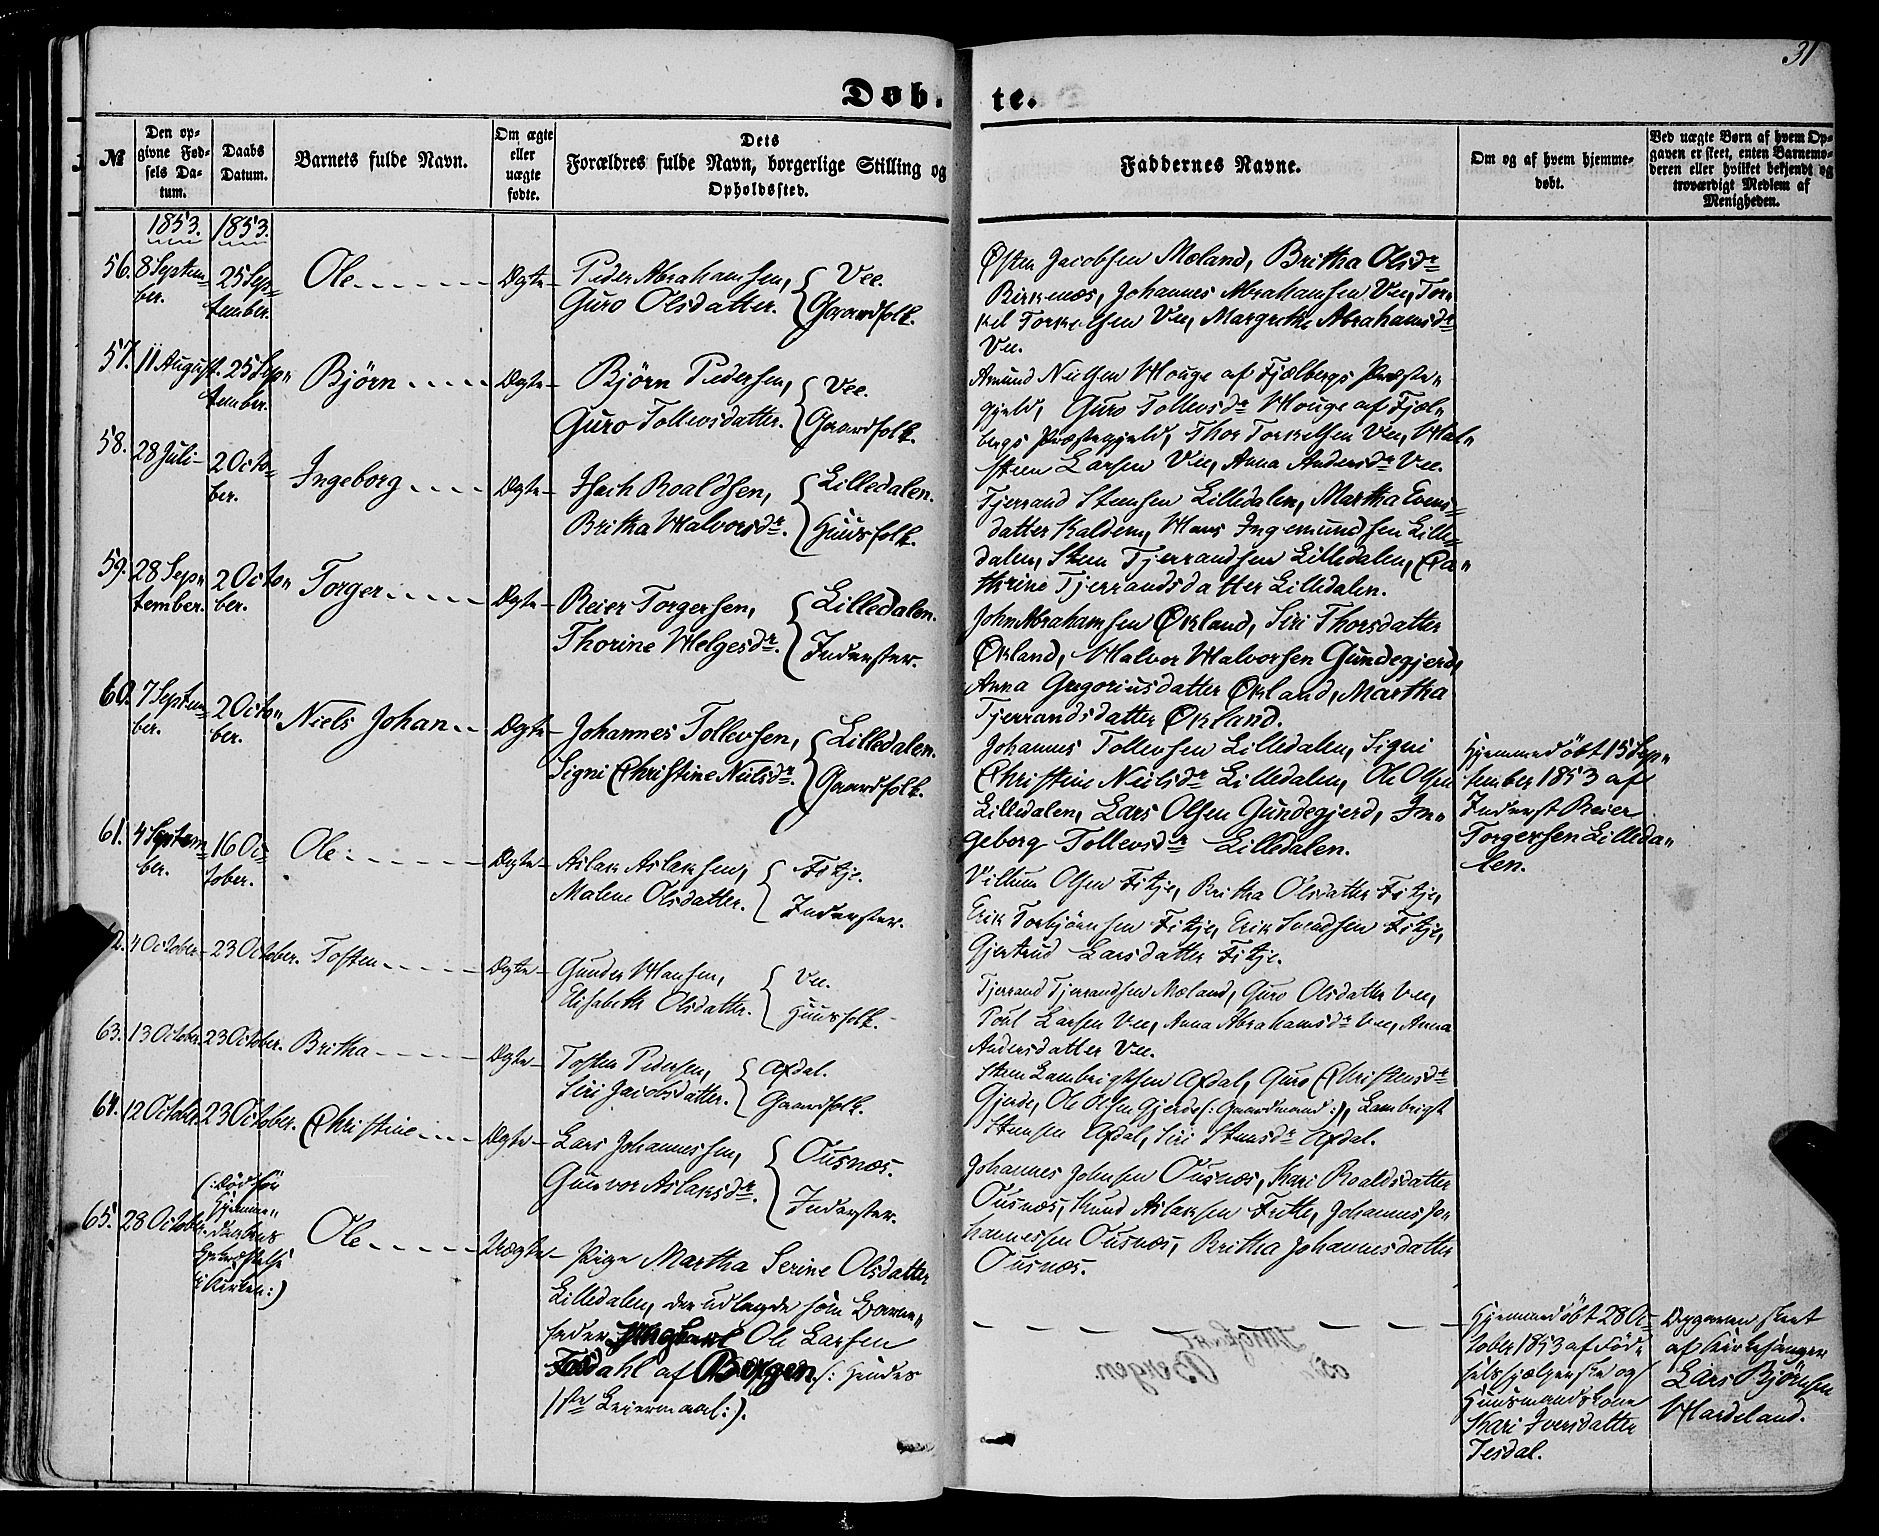 31
Døb-te.
№
Den op-
givne Fød-
sels Da-
tum.
Daabs
Datum.
Barnets fulde Navn.
Om ægte
eller
uægte
fødte.
Dets
Forældres fulde Navn, borgerlige Stilling og
Opholdssted.
Faddernes Navne.
Om og af hvem hjemme-
døbt.
Ved uægte Børn af hvem Op-
gaven er skeet, enten Barnemo-
deren eller hvilket bekjendt og
troværdigt Medlem af
Menigheden.
1853. 1853.
56. 8 Septem-
ber.
25 Sep-
tember.
Ole
Ægte
Peder Abrahamsen,
Guro Olsdatter.
Vee.
Gaardfolk.
Østen Jacobsen Mæland, Britha Olsdr
Birkenæs, Johannes Abrahamsen Vee, Tor-
kel Torkelsen Vee, Margrethe Abrahamsdr
Vee.
57. 11 August.
25 Sep-
tember.
Bjørn
Ægte
Bjørn Pedersen,
Guro Tollevsdatter.
Vee.
Gaardfolk.
Amund Nielsen Houge af Fjælbergs Præste-
gjeld, Guro Tollevsdr Houge af Fjæl-
bergs Præstegjeld, Thor Torkelsen Vee, Hal-
steen Larsen Vee, Anna Andersdr Vee.
58. 28 Juli
2 Octo-
ber.
Ingeborg
Ægte
Isach Roaldsen,
Britha Halvorsdr.
Lilledalen.
Huusfolk.
Tjerrand Steensen Lilledalen, Martha Evens-
datter Kaldem, Hans Ingemundsen Lille-
dalen, Steen Tjerrandsen Lilledalen, Ca-
thrine Tjerrandsdatter Lilledalen.
59. 28 Sep-
tember.
2 Octo-
ber.
Torger
Ægte
Reier Torgersen,
Thorine Helgesdr.
Lilledalen.
Inderster.
John Abrahamsen Økland, Siri Thorsdatter
Økland, Halvor Halvorsen Gundegjerd,
Anna Gregoriusdatter Økland, Martha
Tjerrandsdatter Økland.
60. 7 Septem-
ber.
2 Octo-
ber.
Niels Johan
Ægte
Johannes Tollevsen,
Signi Christine Nielsdr.
Lilledalen.
Gaardfolk.
Johannes Tollevsen Lilledalen, Signi
Christine Nielsdr Lilledalen, Ole Olsen
Lilledalen, Lars Olsen Gundegjerd, In-
geborg Tollevsdr Lilledalen.
Hjemmedøbt 15 Sep-
tember 1853 af
Inderst Reier
Torgersen Lilleda-
len.
61. 4 Septem-
ber.
16 Oc-
tober.
Ole
Ægte
Aslak Aslaksen,
Malene Olsdatter.
Fitje.
Inderster.
Villum Olsen Fitje, Britha Olsdatter Fitje,
Erik Torbjörnsen Fitje, Erik Knudsen Fitje,
Gjertrud Larsdatter Fitje.
62. 4 October
23 October.
Tosten
Ægte
Gunder Hansen,
Elisabeth Olsdatter.
Vee.
Huusfolk.
Tjerrand Tjerrandsen Mæland, Guro Olsdatter Vee,
Poul Larsen Vee, Anna Abrahamsdr Vee, Anna
Andersdatter Vee.
63. 13 October.
23 October.
Britha
Ægte
Tosten Pedersen,
Siri Jacobsdatter.
Axdal.
Gaardfolk.
Steen Lambrigtsen Axdal, Guro Christensdr
Gjerde, Ole Olsen Gjerde (: Gaardmand :), Lambrigt
Steensen Axdal, Siri Steensdr Axdal.
64. 12 October.
23 October.
Christine
Ægte
Lars Johannessen,
Gunvor Aslaksdr.
Ousnæs.
Inderster.
Johannes Johnsen Ousnæs, Kari Roaldsdatter
Ousnæs, Knud Aslaksen Frette, Johannes Jo-
hannessen Ousnæs, Britha Johannesdatter
Ousnæs.
65. 28 October.
(: død før
Hjemme-
daabens
Bekræftelse
i Kirken :)
Ole
Uægte
Pige Martha Serine Olsdatter
Lilledalen, der udlagde som Barne-
fader Ungkarl Ole Larsen
Fosdahl af Bergen (: Hendes
1ste Leiermaal :).
Hjemmedøbt 28 Oc-
tober 1853 af Fød-
selshjælperske og
Huusmandskone
Kari Iversdatter
Tesdal.
Opgaven skeet
af Kirkesanger
Lars Björnsen
Hardeland.